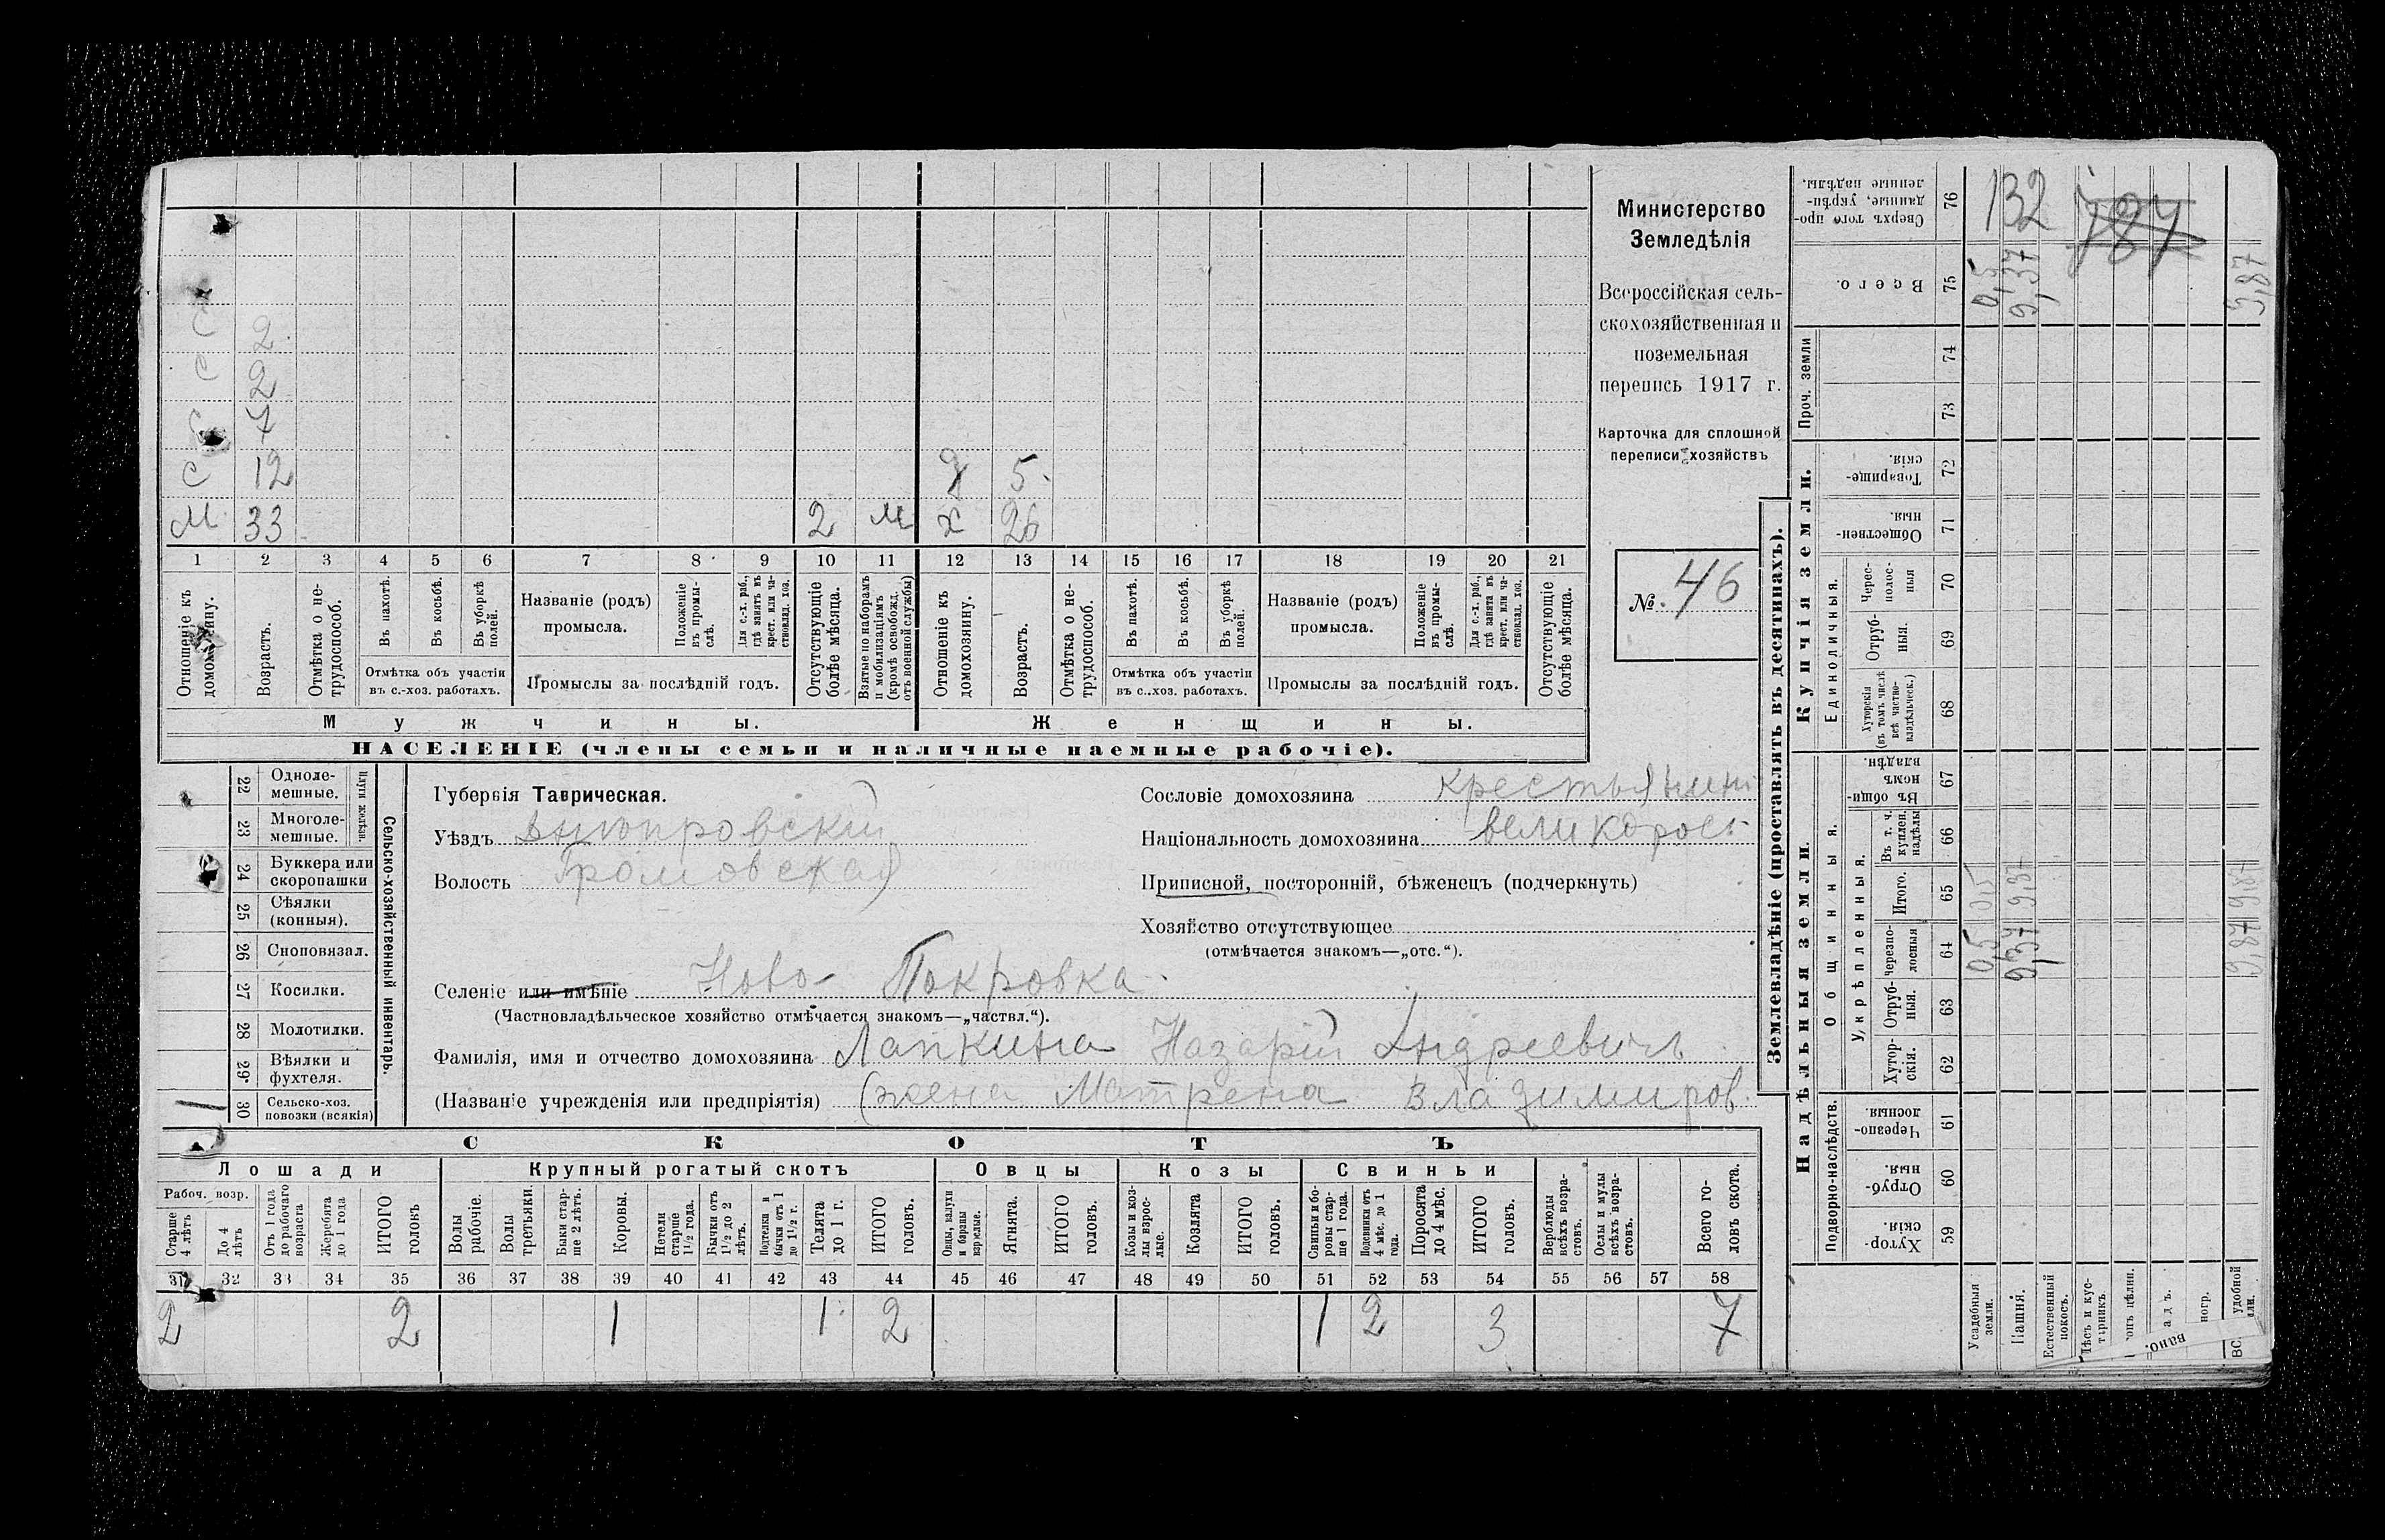 С 2
С 2
С 7
С 12 д 5
М 33 2 м х 26
1 2 3 4 5 6 7 8 9 10 11 12 13 14 15 16 17 18 19 20 21
Отношеніе къ домохозяину.
Возрастъ.
Отмѣтка о нетрудоспособ.
Въ пахотѣ.
Въ косьбѣ.
Въ уборкѣ полей.
Отмѣтка объ участіи въ с.-хоз. работахъ.
Названіе (родъ) промысла.
Положеніе въ промыслѣ.
Для с.-х. раб., гдѣ занятъ въ крест. или частновлад. хоз.
Промыслы за послѣдній годъ.
Отсутствующіе болѣе мѣсяца.
Взятые по наборамъ и мобилизаціямъ (кромѣ освобожд. отъ военной службы)
Отношеніе къ домохозяину.
Возрастъ.
Отмѣтка о нетрудоспособ.
Въ пахотѣ.
Въ косьбѣ.
Въ уборкѣ полей.
Отмѣтка объ участіи въ с.-хоз. работахъ.
Названіе (родъ) промысла.
Положеніе въ промыслѣ.
Для с.-х. раб., гдѣ занята въ крест. или частновлад. хоз.
Промыслы за послѣдній годъ.
Отсутствующіе болѣе мѣсяца.
Мужчины. Женщины.
НАСЕЛЕНІЕ (члены семьи и наличные наемные рабочіе).
Министерство
Земледѣлія
Всероссійская сель-
скохозяйственная и
поземельная
перепись 1917 г.
Карточка для сплошной
переписи хозяйствъ
№ 46
22 Одноле-
мешные.
23 Многоле-
мешные.
Плуги желѣзн.
24 Буккера или
скоропашки
25 Сѣялки
(конныя).
26 Сноповязал.
27 Косилки.
28 Молотилки.
29 Вѣялки и
фухтеля.
1 30 Сельско-хоз.
повозки (всякія)
Сельско-хозяйственный инвентарь.
Губернія Таврическая.
Уѣздъ Днѣпровскій
Волость Громовская
Сословіе домохозяина крестьянинъ
Національность домохозяина великорос.
Приписной, посторонній, бѣженецъ (подчеркнуть)
Хозяйство отсутствующее
(отмѣчается знакомъ—„отс.“).
Селеніе или имѣніе Ново-Покровка
(Частновладѣльческое хозяйство отмѣчается знакомъ—„частвл.“).
Фамилія, имя и отчество домохозяина Лапкина Назарій Андреевичъ
(Названіе учрежденія или предпріятія) (жена Матрена Владимиров.
СКОТЪ
Лошади Крупный рогатый скотъ Овцы Козы Свиньи
Рабоч. возр.
Старше 4 лѣтъ
До 4 лѣтъ
Отъ 1 года до рабочаго возраста
Жеребята до 1 года
ИТОГО головъ
Волы рабочіе.
Волы третьяки.
Быки старше 2 лѣтъ.
Коровы.
Нетели старше 1 1/2 года.
Бычки отъ 1 1/2 до 2 лѣтъ.
Подтелки и бычки отъ 1 до 1 1/2 г.
Телята до 1 г.
ИТОГО головъ.
Овцы, валухи и бараны взрослые.
Ягнята.
ИТОГО головъ.
Козы и козлы взрослые.
Козлята
ИТОГО головъ.
Свиньи и боровы старше 1 года.
Подсвинки отъ 4 мѣс. до 1 года.
Поросята до 4 мѣс.
ИТОГО головъ.
Верблюды всѣхъ возрастовъ.
Ослы и мулы всѣхъ возрастовъ.
Всего головъ скота.
31 32 33 34 35 36 37 38 39 40 41 42 43 44 45 46 47 48 49 50 51 52 53 54 55 56 57 58
2 2 1 1 2 1 2 3 7
Землевладѣніе (проставлять въ десятинахъ).
Купчія земли.
Надѣльныя земли.
Сверхъ того проданные, укрѣпленные надѣлы. 76
132 787
Всего. 75 0,5 9,37 9,87
Проч. земли 74
73
Товарищескія. 72
Общественныя. 71
Единоличныя.
Чересполосныя 70
Отрубныя. 69
Хуторскія (въ томъ числѣ всѣ частновладѣльческ.) 68
Общинныя.
Въ общинномъ владѣн. 67
Укрѣпленныя.
Въ т. ч. куплен. надѣлы 66
Итого. 65 0,5 9,37 9,87
черезполосныя 64 0,5 9,37 9,87
Отрубныя. 63
Хуторскія. 62
Подворно-наслѣдств.
Черезполосныя. 61
Отрубныя. 60
Хуторскія. 59
Усадебныя земли.
Пашня.
Естественный покосъ.
Лѣсъ и кустарникъ
удобной
вано.